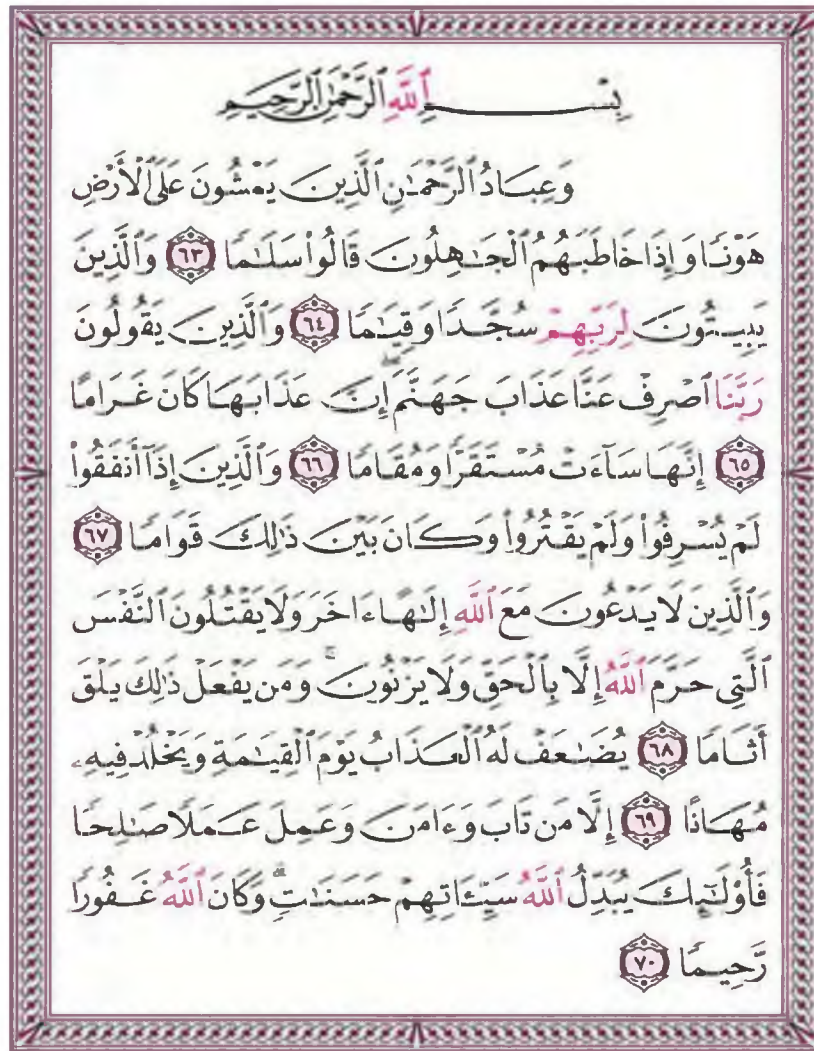 بِسْمِ ٱللَّهِ ٱلرَّحْمَٰنِ ٱلرَّحِيمِ
وَعِبَادُ ٱلرَّحْمَٰنِ ٱلَّذِينَ يَمْشُونَ عَلَى ٱلْأَرْضِ
هَوْنًا وَإِذَا خَاطَبَهُمُ ٱلْجَٰهِلُونَ قَالُوا۟ سَلَٰمًا ٦٣ وَٱلَّذِينَ
يَبِيتُونَ لِرَبِّهِمْ سُجَّدًا وَقِيَٰمًا ٦٤ وَٱلَّذِينَ يَقُولُونَ
رَبَّنَا ٱصْرِفْ عَنَّا عَذَابَ جَهَنَّمَ ۖ إِنَّ عَذَابَهَا كَانَ غَرَامًا
٦٥ إِنَّهَا سَآءَتْ مُسْتَقَرًّا وَمُقَامًا ٦٦ وَٱلَّذِينَ إِذَآ أَنفَقُوا۟
لَمْ يُسْرِفُوا۟ وَلَمْ يَقْتُرُوا۟ وَكَانَ بَيْنَ ذَٰلِكَ قَوَامًا ٦٧
وَٱلَّذِينَ لَا يَدْعُونَ مَعَ ٱللَّهِ إِلَٰهًا ءَاخَرَ وَلَا يَقْتُلُونَ ٱلنَّفْسَ
ٱلَّتِي حَرَّمَ ٱللَّهُ إِلَّا بِٱلْحَقِّ وَلَا يَزْنُونَ ۚ وَمَن يَفْعَلْ ذَٰلِكَ يَلْقَ
أَثَامًا ٦٨ يُضَٰعَفْ لَهُ ٱلْعَذَابُ يَوْمَ ٱلْقِيَٰمَةِ وَيَخْلُدْ فِيهِۦ
مُهَانًا ٦٩ إِلَّا مَن تَابَ وَءَامَنَ وَعَمِلَ عَمَلًا صَٰلِحًا
فَأُو۟لَٰٓئِكَ يُبَدِّلُ ٱللَّهُ سَيِّـَٔاتِهِمْ حَسَنَٰتٍ ۗ وَكَانَ ٱللَّهُ غَفُورًا
رَّحِيمًا ٧٠